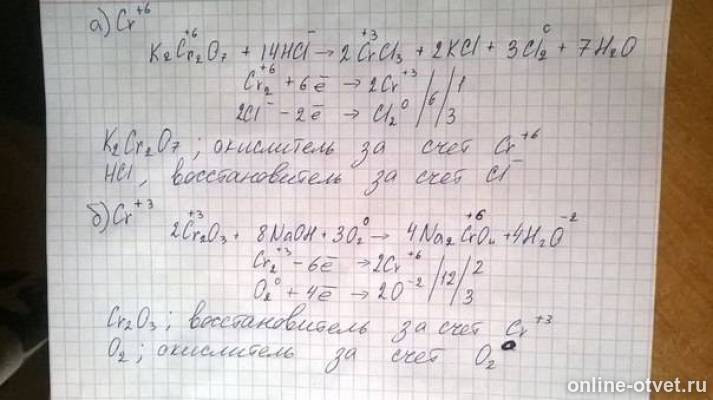 а) Cr⁺⁶
K₂Cr₂⁺⁶O₇ + 14HCl⁻ → 2Cr⁺³Cl₃ + 2KCl + 3Cl₂⁰ + 7H₂O
Cr₂⁺⁶ + 6ē → 2Cr⁺³ / 6 / 1
2Cl⁻ - 2ē → Cl₂⁰ / 6 / 3
K₂Cr₂O₇; окислитель за счет Cr⁺⁶
HCl, восстановитель за счет Cl⁻
б) Cr⁺³
2Cr₂⁺³O₃ + 8NaOH + 3O₂⁰ → 4Na₂Cr⁺⁶O₄ + 4H₂O⁻²
Cr₂⁺³ - 6ē → 2Cr⁺⁶ / 12 / 2
O₂⁰ + 4ē → 2O⁻² / 12 / 3
Cr₂O₃; восстановитель за счет Cr⁺³
O₂; окислитель за счет O₂⁰
online-otvet.ru